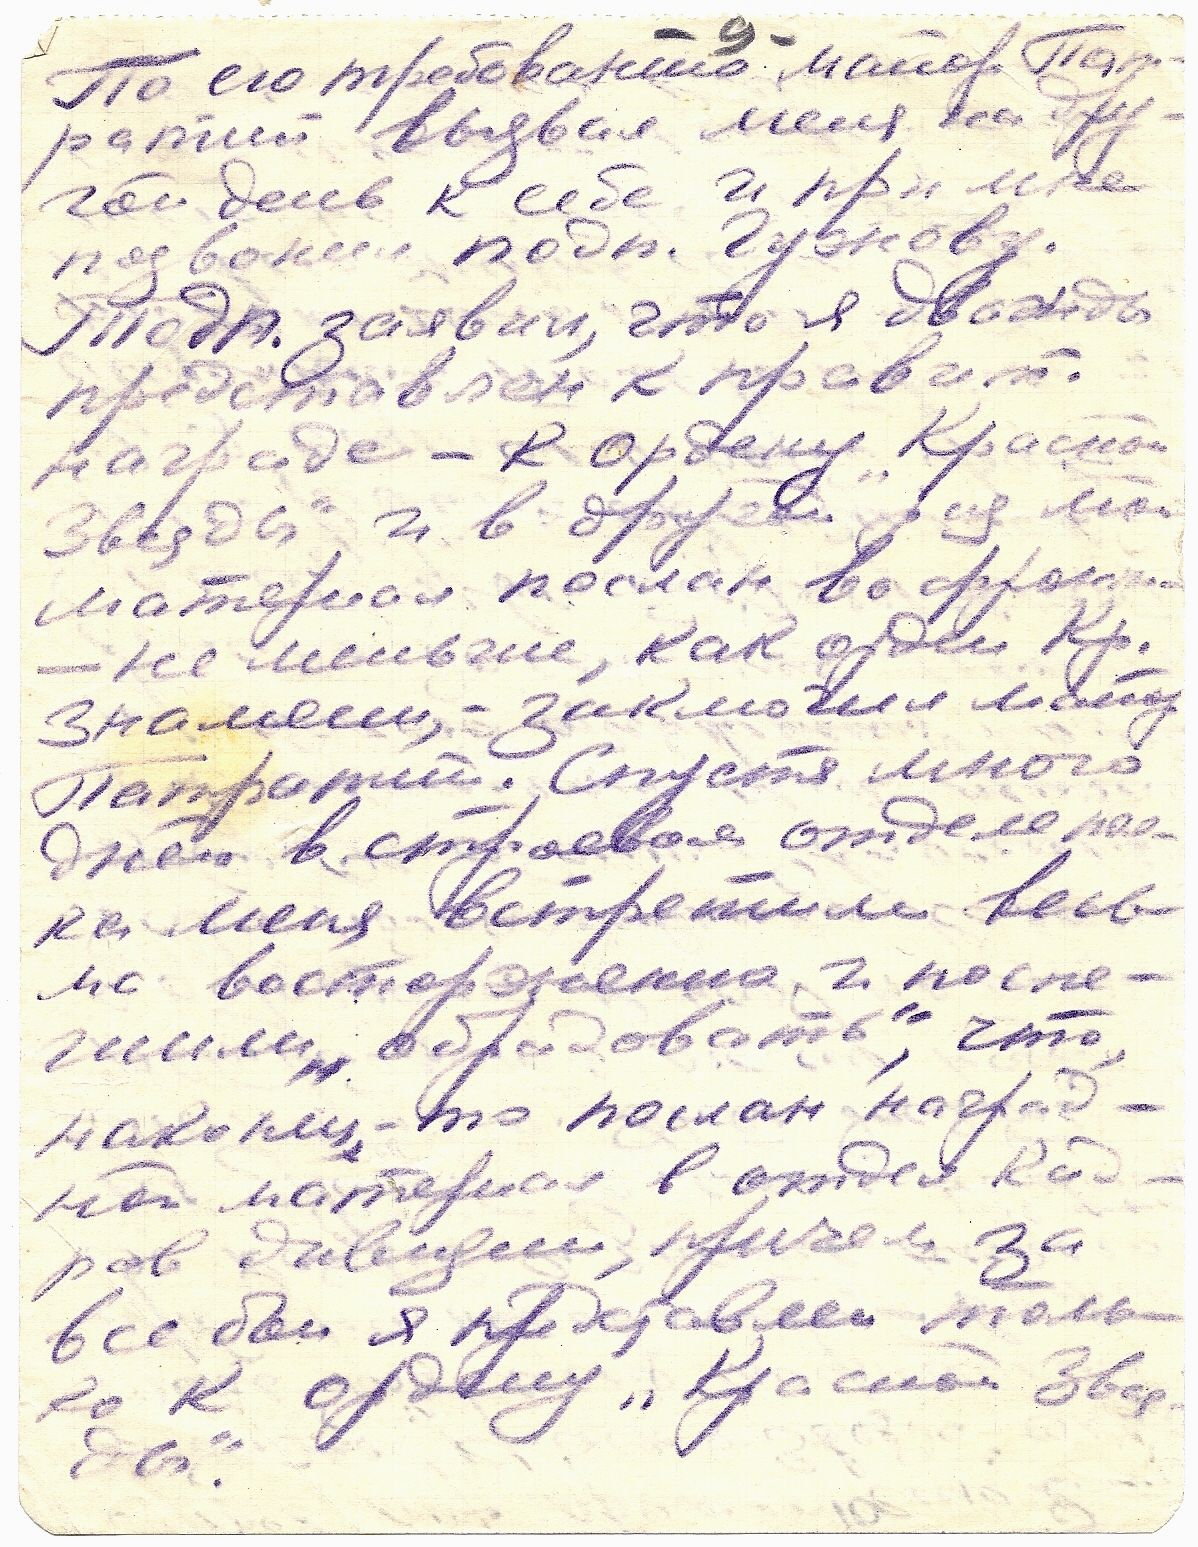 - 9 -
По его требованию майор Пат-
ратий вызвал меня на дру-
гой день к себе и при мне
позвонил подп. Гузнову.
Подп. заявил, что я дважды
представлен к правит.
награде – к ордену „Красной
Звезды" и в другой раз мой
материал послан во фронт
– не меньше, как орден Кр.
Знамени, - заключил майор
Патратий. Спустя много
дней в строевом отделе пол-
ка меня встретили весь-
ма восторженно и поспе-
шили „обрадовать", что,
наконец,-то послан наград-
ной материал в отдел кад-
ров дивизии, причем за
все бои я представлен толь-
ко к ордену „Красной Звез-
ды".